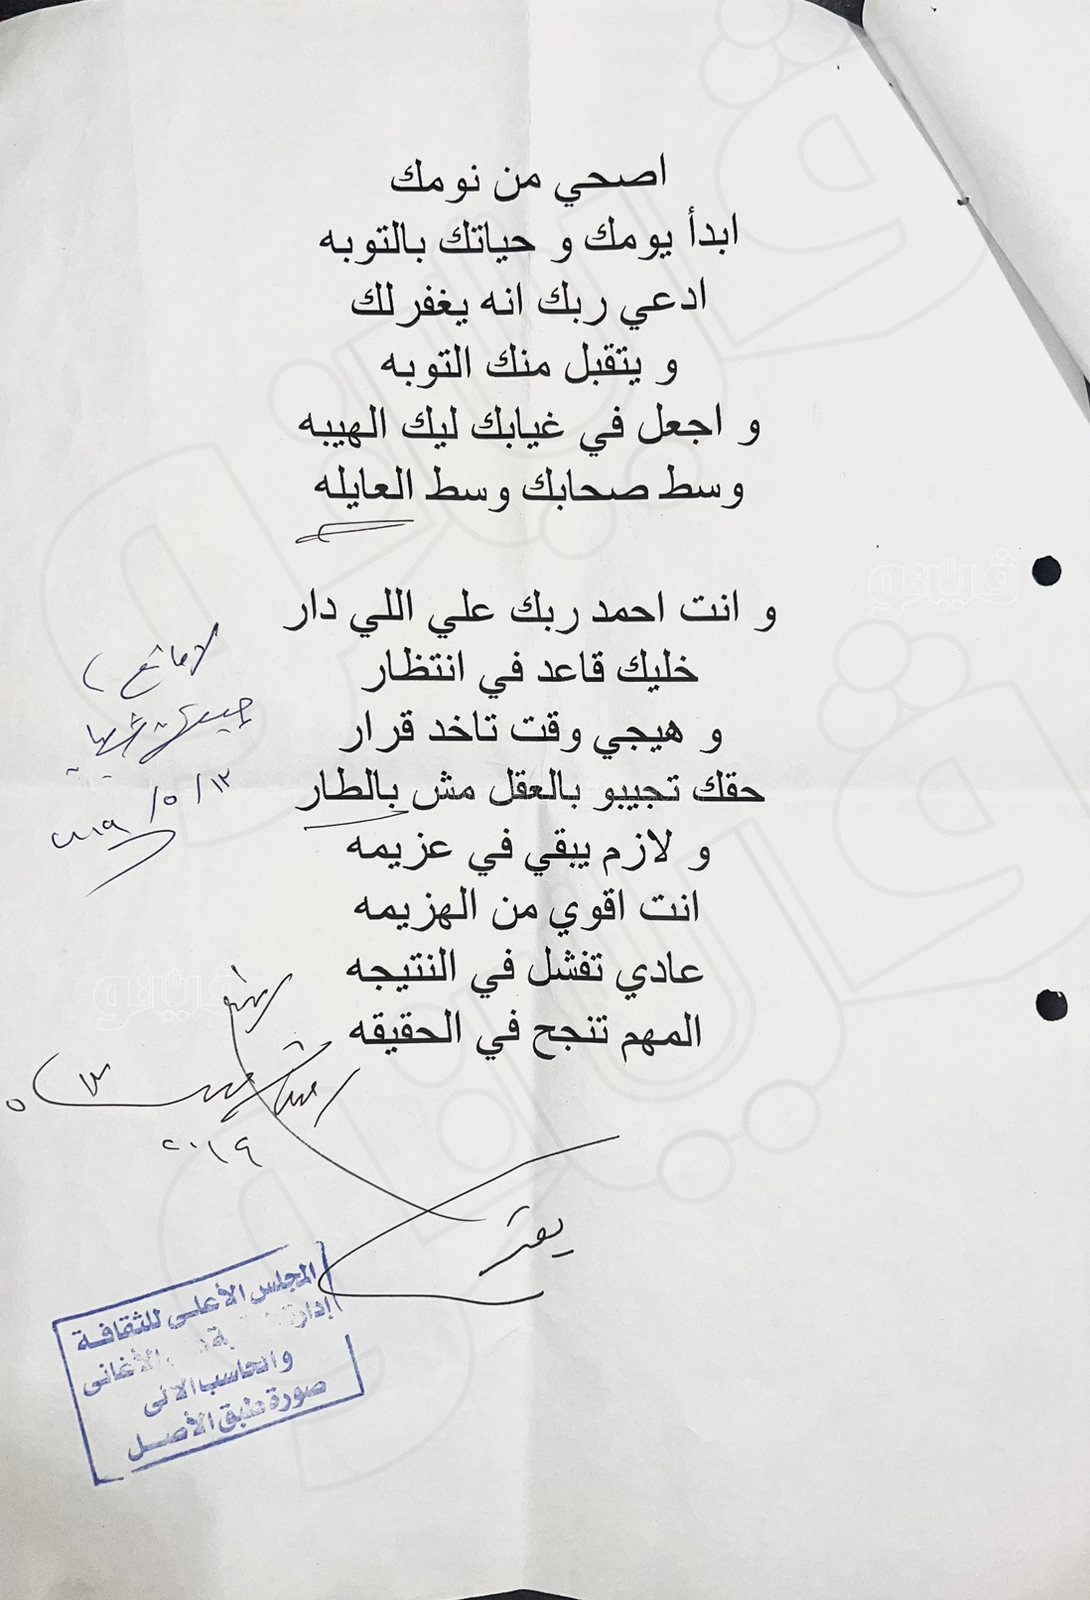 اصحي من نومك
ابدأ يومك و حياتك بالتوبه
ادعي ربك انه يغفر لك
و يتقبل منك التوبه
و اجعل في غيابك ليك الهيبه
وسط صحابك وسط العايله
و انت احمد ربك علي اللي دار
خليك قاعد في انتظار
و هيجي وقت تاخد قرار
حقك تجيبو بالعقل مش بالطار
و لازم يبقي في عزيمه
انت اقوي من الهزيمه
عادي تفشل في النتيجه
المهم تنجح في الحقيقه
لا مانع
١٢ / ٥ / ٢٠١٩
٢٠١٩
المجلس الأعلى للثقافة
إدارة الأغانى
والحاسب الالى
صورة طبق الأصل
فريانو
فريانو